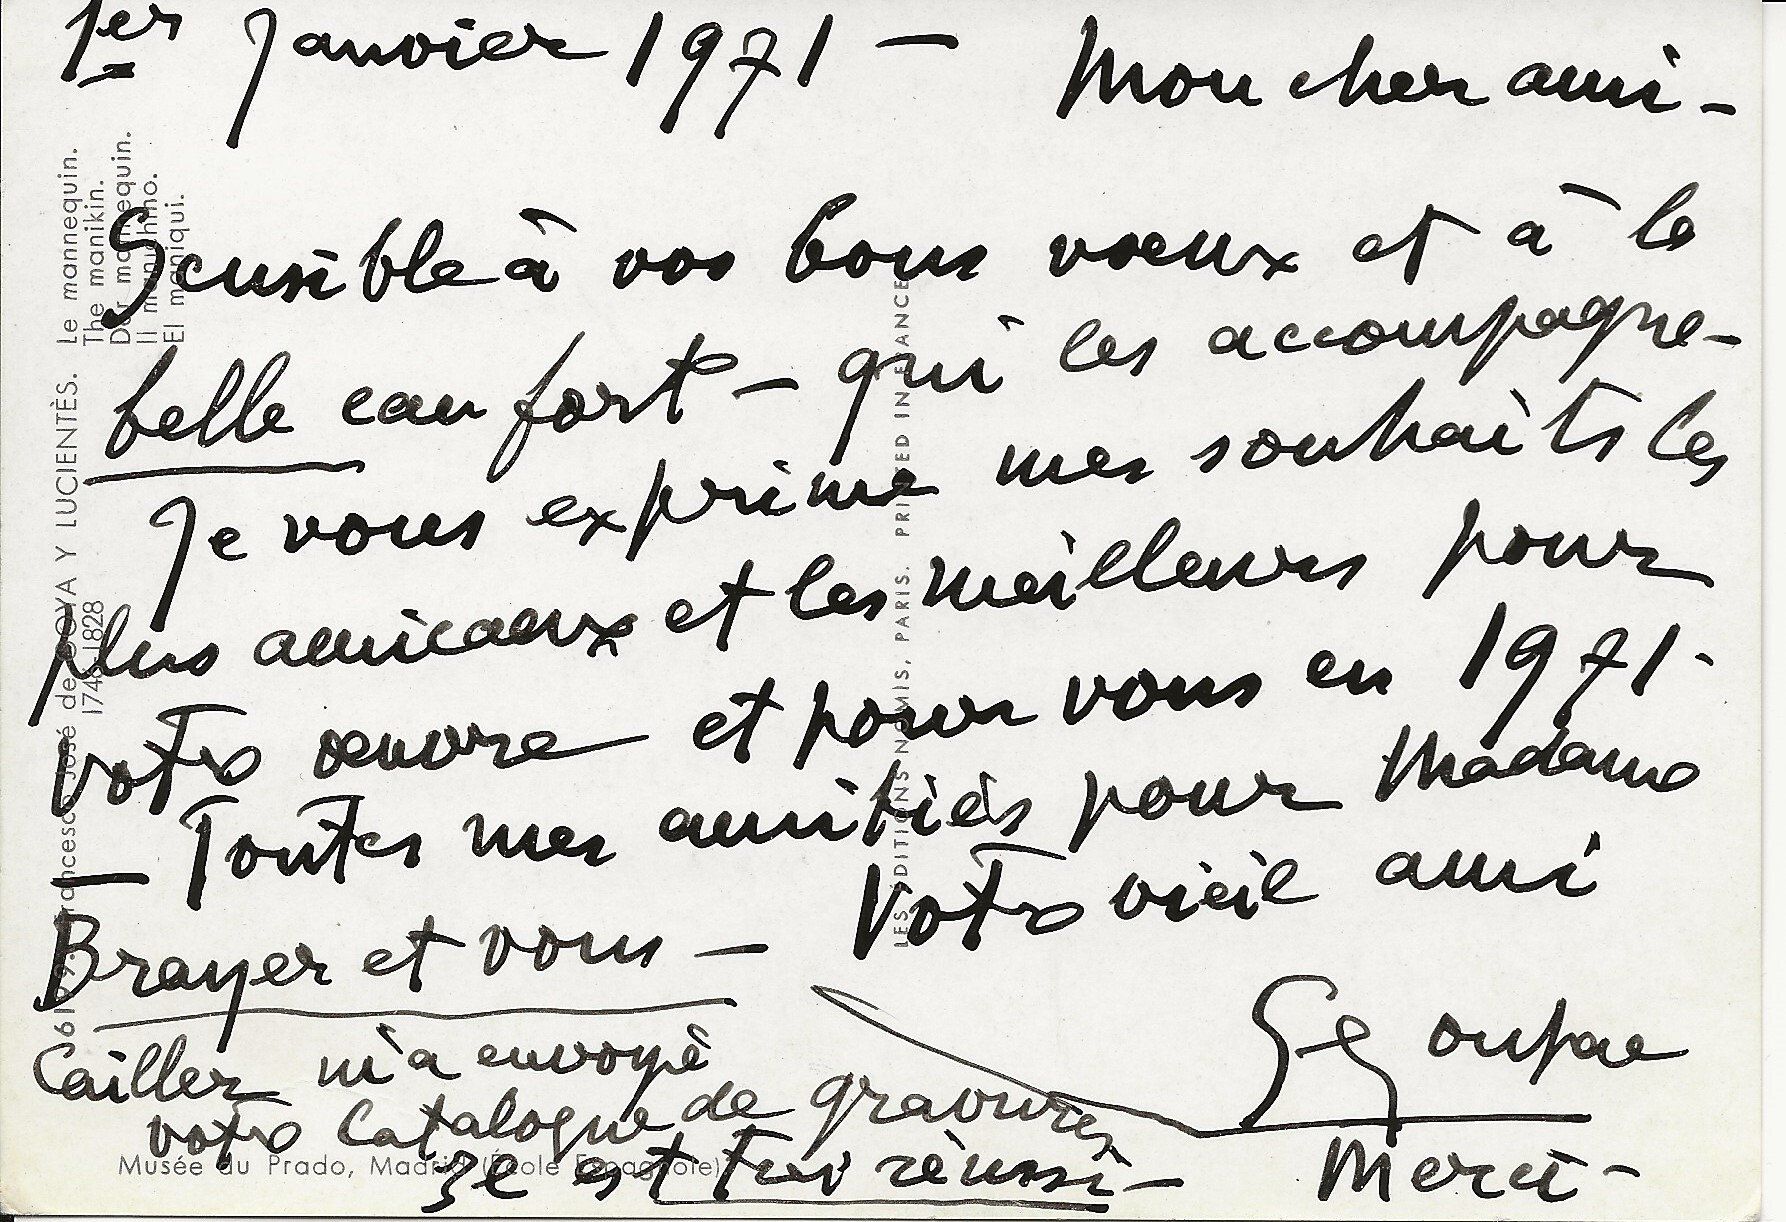 1er Janvier 1971 — Mon cher ami —
Sensible à vos bons vœux et à la
belle eau fort — qui les accompagne —
Je vous exprime mes souhaits les
plus amicaux et les meilleurs pour
votre œuvre et pour vous en 1971.
— Toutes mes amitiés pour Madame
Brayer et vous — Votre vieil ami
Cailler m'a envoyé
votre Catalogue de gravures
est très réussi —
Merci —
Francesco José de GOYA Y LUCIENTÈS. Le mannequin.
1748-1828 The manikin.
Der mannequin.
Il
El maniqui.
LES ÉDITIONS NOMIS, PARIS. PRINTED IN FRANCE
Musée du Prado, Madrid (École Espagnole)